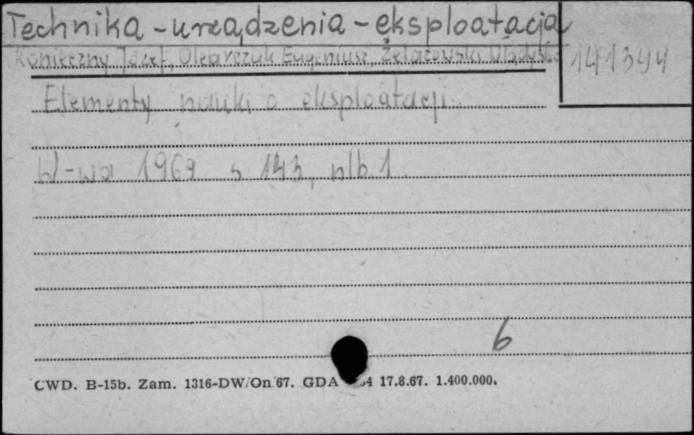 Technika - urządzenia - eksploatacja
Konieczny Józef, Olearczuk Eugeniusz, Żelazowski Władysł. 141394
Elementy nauki o eksploatacji.
W-wa 1969 s 143, nlb. 1.
6
CWD. B-15b. Zam. 1316-DW/On 67. GDA 4 17.8.67. 1.400.000.